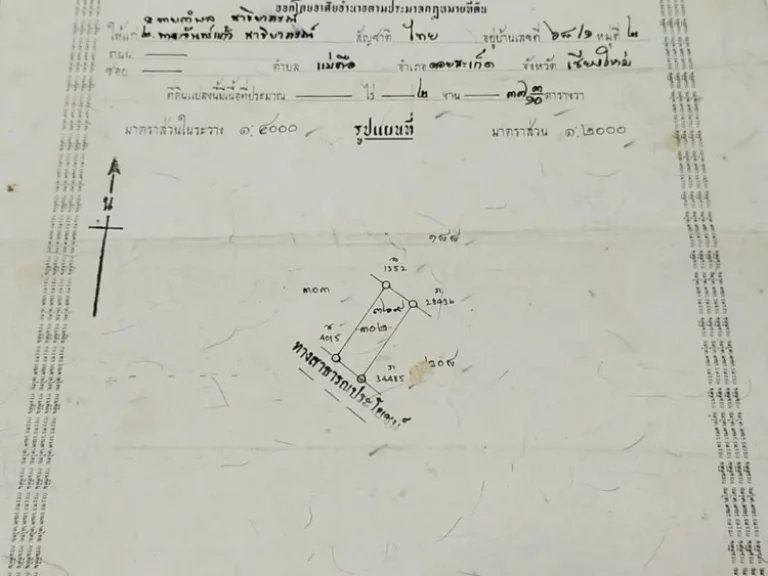 ออกโดยอาศัยอำนาจตามประมวลกฎหมายที่ดิน
ให้แก่ ๒. สัญชาติ ไทย อยู่บ้านเลขที่ ๖๘/๑ หมู่ที่ ๒
ถนน
ซอย ตำบล แม่คือ อำเภอ ดอยสะเก็ด จังหวัด เชียงใหม่
ที่ดินแปลงนี้มีเนื้อที่ประมาณ ไร่ ๒ งาน ๓๗ ๓/๑๐ ตารางวา
มาตราส่วนในระวาง ๑:๔๐๐๐ รูปแผนที่ มาตราส่วน ๑:๒๐๐๐
น
๑๙๘
1352
๓๐๓
28436
๓๒๙
๓๐๒
4015
34485
๒๐๘
ทางสาธารณประโยชน์